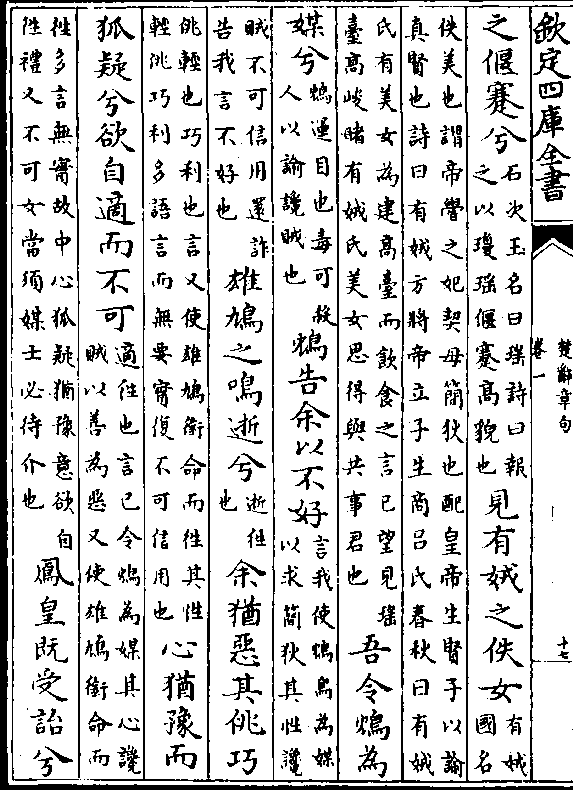 欽定四庫全書
楚辭章句
卷一
十七
之偃蹇兮石次玉名曰瑤詩曰報之以瓊瑤偃蹇高貌也見有娀之佚女有娀國名
佚美也謂帝嚳之妃契母簡狄也配皇帝生賢子以諭真賢也詩曰有娀方將帝立子生商吕氏春秋曰有娀
氏有美女為建高臺而飲食之言已望見瑤臺高峻睹有娀氏美女思得與共事君也吾令鴆為
媒兮鴆運目也毒可殺人以諭讒賊也鴆告余以不好言我使鴆鳥為媒以求簡狄其性讒
賊不可信用還詐告我言不好也雄鳩之鳴逝兮逝徃也余猶惡其佻巧
佻輕也巧利也言又使雄鳩銜命而徃其性輕佻巧利多語言而無要實復不可信用也心猶豫而
狐疑兮欲自適而不可適徃也言已令鴆為媒其心讒賊以善為惡又使雄鳩銜命而
徃多言無實故中心狐疑猶豫意欲自徃禮又不可女當須媒士必待介也鳳皇既受詒兮